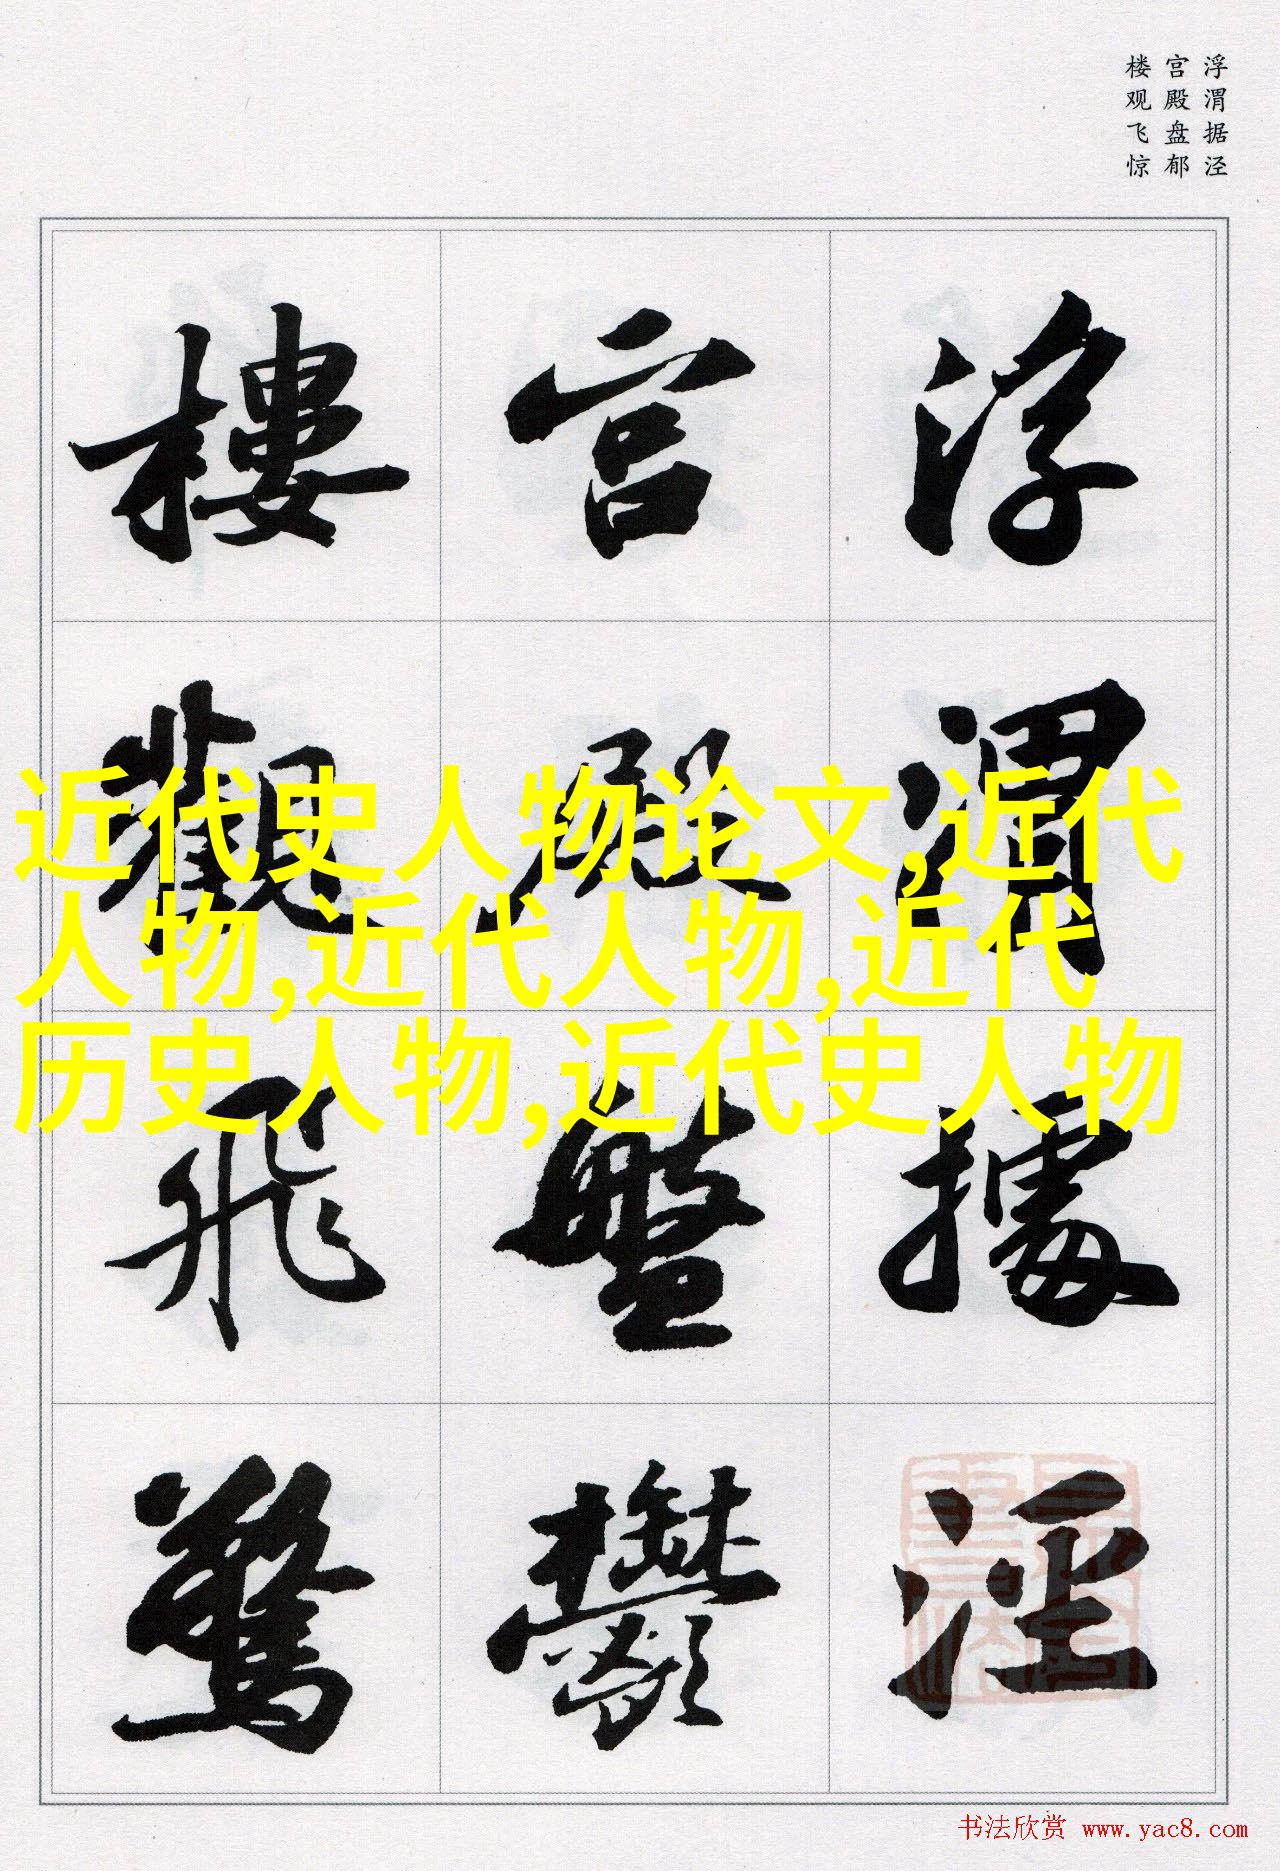 浮渭据泾
宫殿盘郁
楼观飞惊
浮渭據涇
宮殿盤鬱
樓觀飛驚
近代史人物论文,近代
人物,近代人物,近代
历史人物,近代史人物
书法欣赏 www.yac8.com